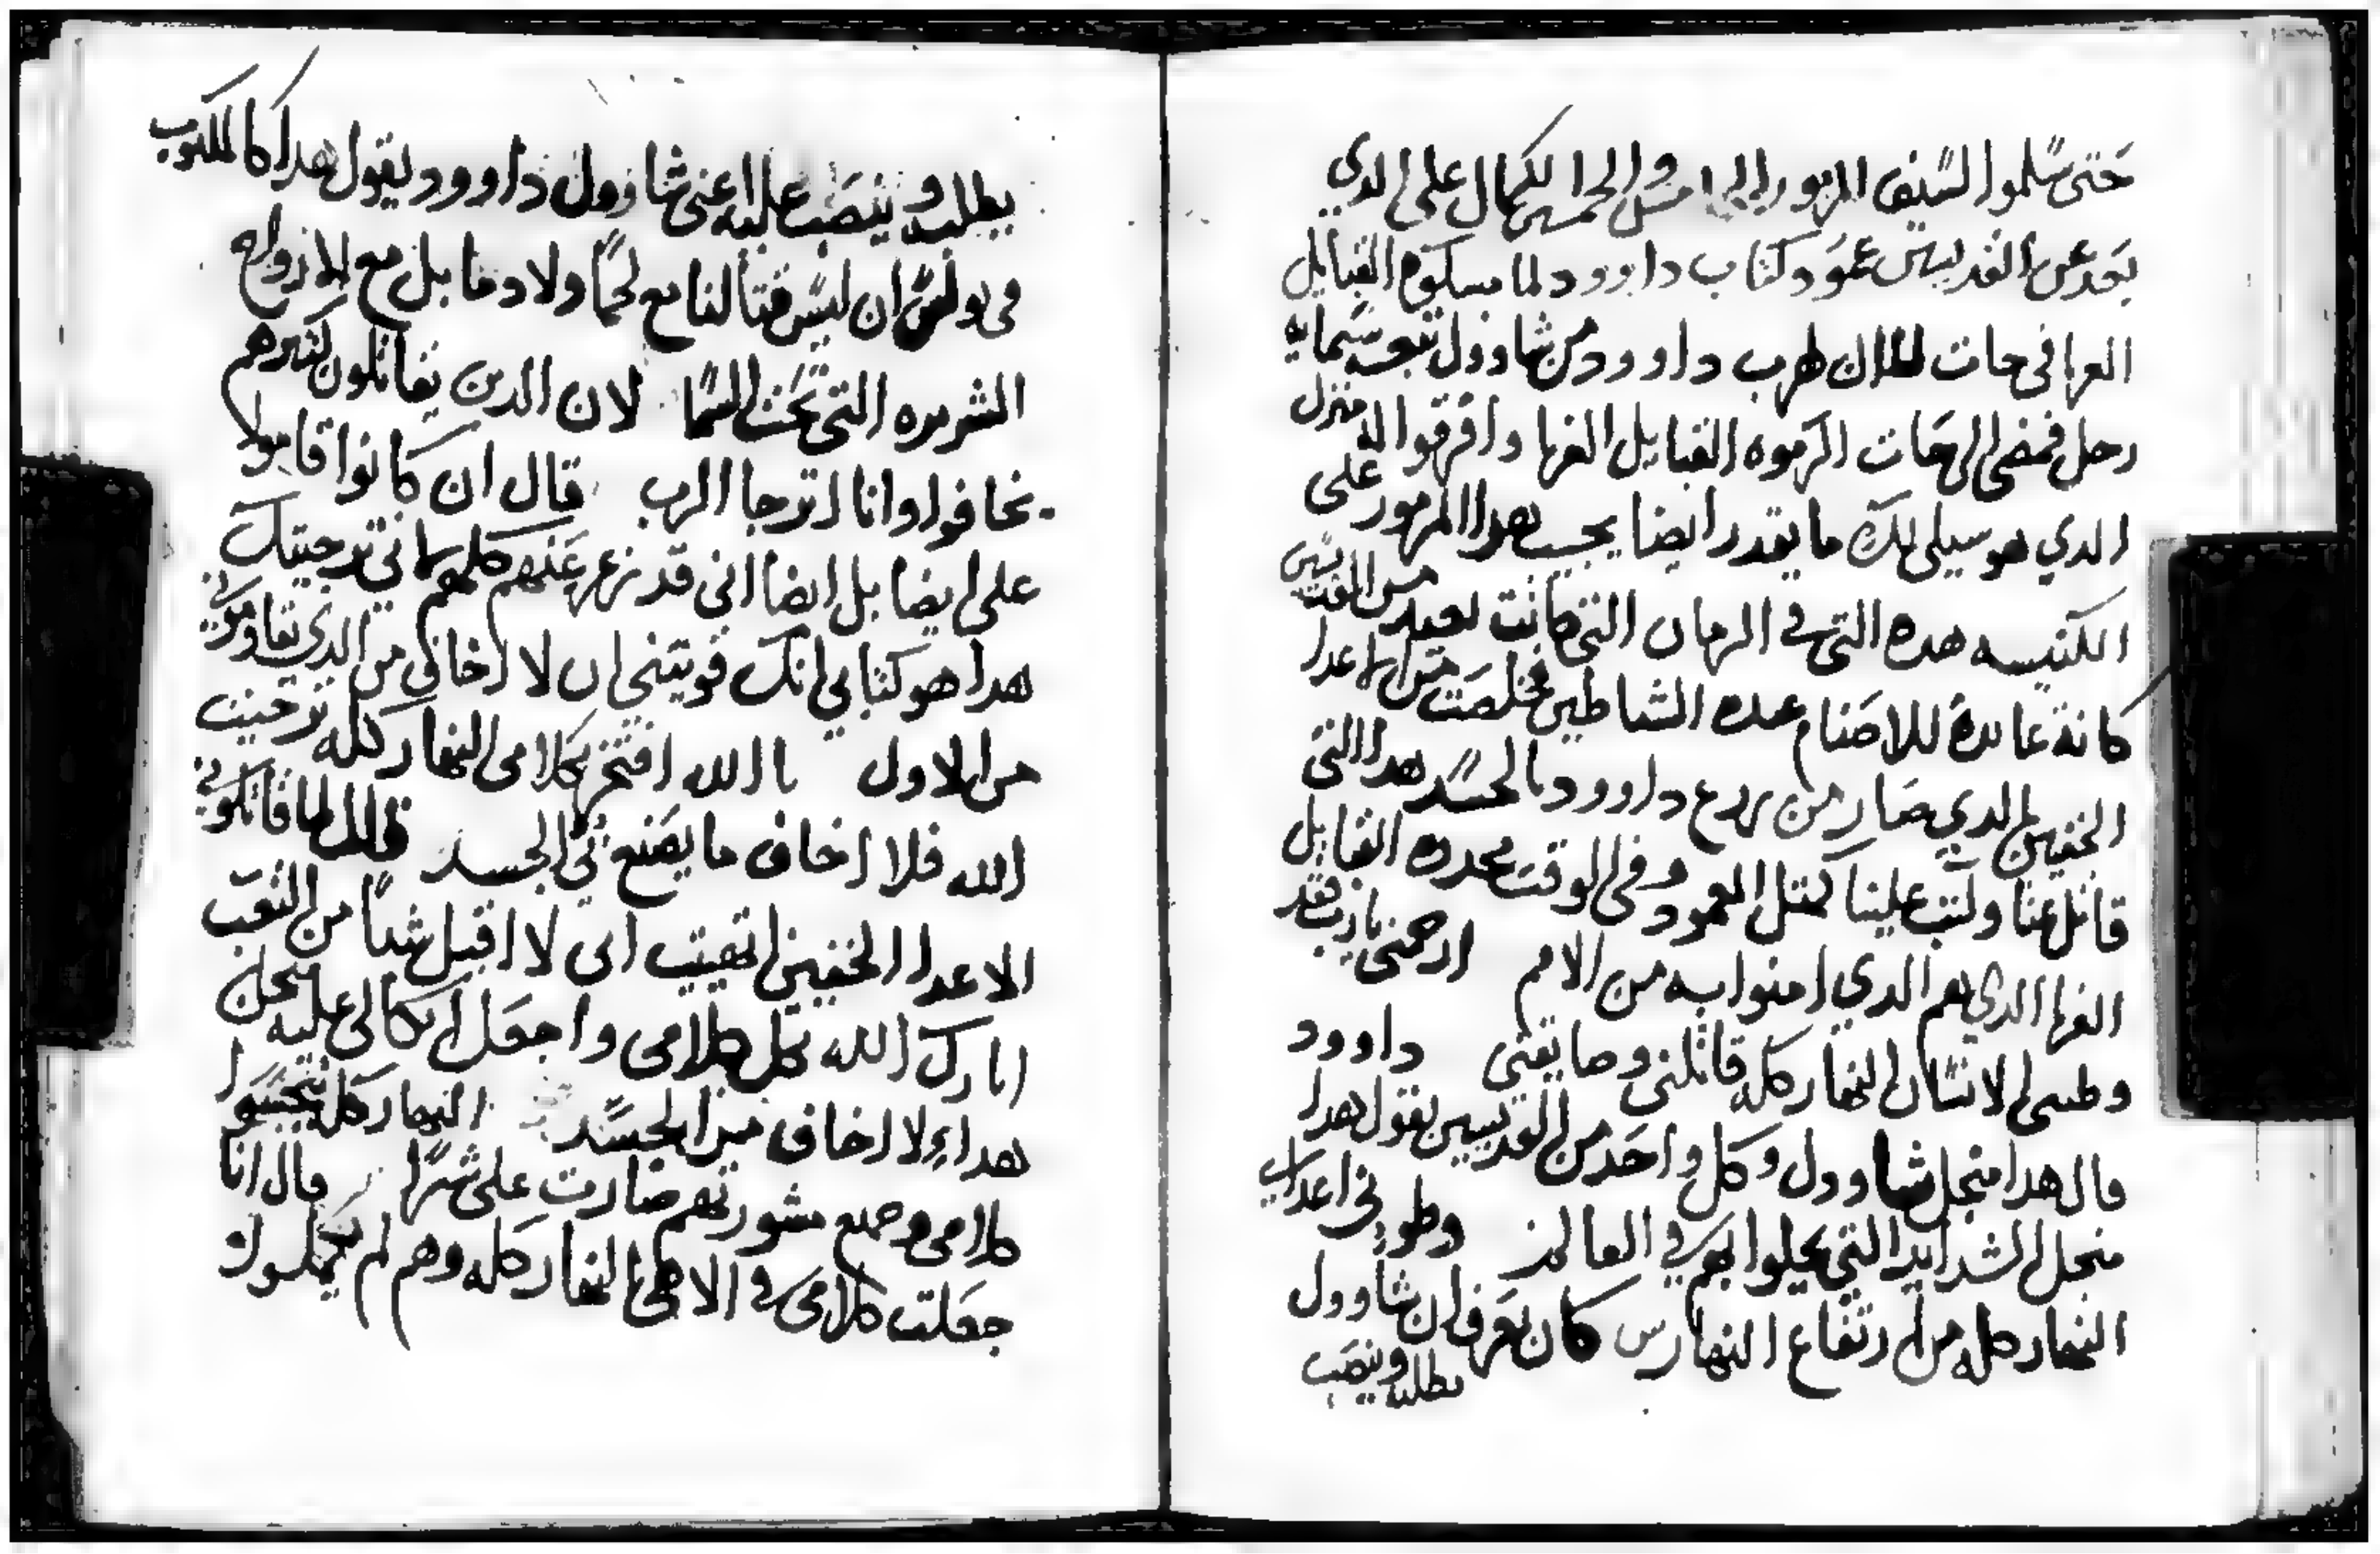 حتى سلموا السيف المزمور الخامس والخمسين لكمال على الدي
بعد عن القديسين عمود كتاب داوود لما مسكوه القبايل
الغربا في جات لما ان هرب داوود من شاوول تبعه ستمايه
رجل فمضى الى جات اكرموه القبايل الغربا وافرقوا له منزل
الدي هو سيلى لك ما يقدر ايضا يحسب هدا المزمور على
الكنيسه هده التي في الزمان التي كانت بعيده من القديسين
كانة عابدة للاصنام عده الشياطين فخلصت من الاعدا
الخفيين الدي صار من زرع داوود بالجسد هدا التي
قاتل عنا وكتب علينا كمتل العمود وفي الوقت القبايل
الغربا الدي هم الدي امنوا به من الامم ارحمنى يارب فقد
وطيى الانسان النهار كله قاتلني وضايقني داوود
قال هدا منجل شاوول وكل واحد من القديسين يقول هدا
منجل الشدايد التي يحلوا بهم في العالم وطوني اعداي
النهار كله من ارتفاع النهار كان يعرف ان شاوول
يطلبه وينصب
يطلبه وينصب عليه اعنى شاوول داوود يقول هدا كالمكتوب
في بولس ان ليس قتالنا مع لحما ولا دما بل مع الارواح
الشريره التي تحت السما لان الدين يقاتلون كتيرهم
يخافوا وانا اترجا الرب قال ان كانوا قاموا
على ايضا بل ايضا اني قد عنهم كلهم لاني ترجيتك
هدا هو كتابي انك قويتني ان لا اخاف من الدي يقاوموني
من الاول باالله افتخر بكلامى النهار كله ترجيت
الله فلا اخاف ما يصنع بي الجسد قال لما قاتلوني
الاعدا الخفيين اني لا اقبل شيا من التعب
ابارك الله بكل كلامى واجعل اتكالى عليه
هدا لا اخاف من الجسد النهار كله
كلامى وجميع مشورتهم صارت على شرا قال انا
جعلت كلامى في الاهى النهار كله وهم لم